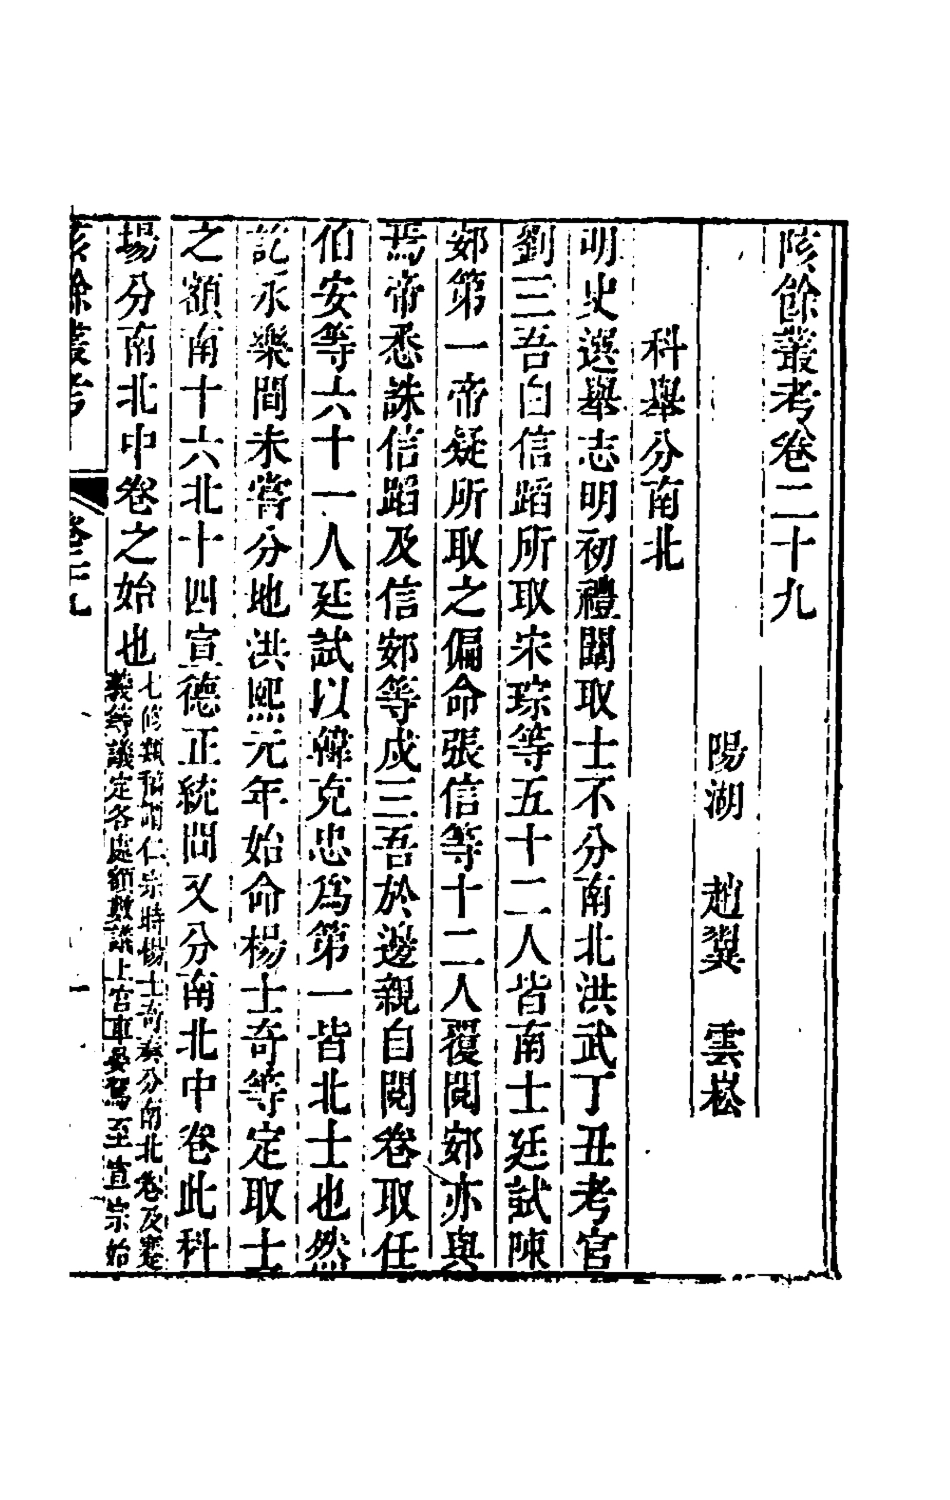 陔餘叢考卷二十九
陽湖　趙翼　雲崧
科舉分南北
明史選舉志明初禮闈取士不分南北洪武丁丑考官
劉三吾白信蹈所取宋琮等五十二人皆南士廷試陳
䢿第一帝疑所取之偏命張信等十二人覆閱䢿亦與
焉帝悉誅信蹈及信䢿等戍三吾於邊親自閱卷取任
伯安等六十一人廷試以韓克忠爲第一皆北士也然
訖永樂間未嘗分地洪熙元年始命楊士奇等定取士
之額南十六北十四宣德正統間又分南北中卷此科
場分南北中卷之始也七修類稿謂仁宗時楊士奇奏分南北卷及蹇
義等議定各處額數議上宮車晏駕至宣宗始
陔餘叢考　卷二十九　一